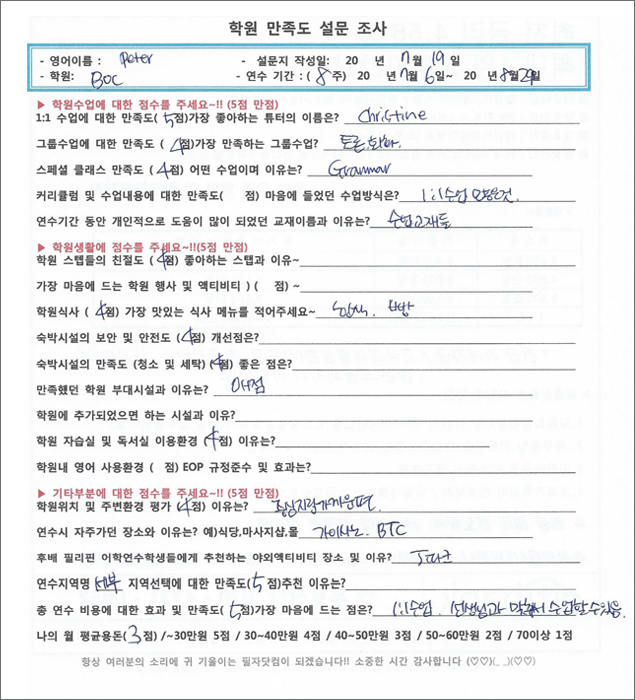 학원 만족도 설문 조사
- 영어이름 : Peter - 설문지 작성일: 20 년 7월 19일
- 학원: BOC - 연수 기간 : ( 8주) 20 년 7월 6일~ 20 년 8월 29일
▶ 학원수업에 대한 점수를 주세요~!! (5점 만점)
1:1 수업에 대한 만족도( 5점)가장 좋아하는 튜터의 이름은? Christine
그룹수업에 대한 만족도 ( 4점)가장 만족하는 그룹수업? 토론,
스페셜 클래스 만족도 ( 4점) 어떤 수업이며 이유는? Grammar
커리큘럼 및 수업내용에 대한 만족도( 점) 마음에 들었던 수업방식은? 1:1수업
연수기간 동안 개인적으로 도움이 많이 되었던 교재이름과 이유는? 수업교재들
▶ 학원생활에 점수를 주세요~!!(5점 만점)
학원 스텝들의 친절도 ( 4점) 좋아하는 스텝과 이유~
가장 마음에 드는 학원 행사 및 액티비티 ) ( 점) ~
학원식사 ( 4점) 가장 맛있는 식사 메뉴를 적어주세요~
숙박시설의 보안 및 안전도 ( 4점) 개선점은?
숙박시설의 만족도 (청소 및 세탁) ( 4점) 좋은 점은?
만족했던 학원 부대시설과 이유는? 매점
학원에 추가되었으면 하는 시설과 이유?
학원 자습실 및 독서실 이용환경 ( 4점) 이유는?
학원내 영어 사용환경 ( 점) EOP 규정준수 및 효과는?
▶ 기타부분에 대한 점수를 주세요!! (5점 만점)
학원위치 및 주변환경 평가 ( 4점) 이유는? 중심지랑 가까운편
연수시 자주가던 장소와 이유는? 예)식당,마사지샵,몰 카지노, BTC
후배 필리핀 어학연수학생들에게 추천하는 야외액티비티 장소 및 이유? J파크
연수지역명 세부 지역선택에 대한 만족도( 5점)추천 이유는?
총 연수 비용에 대한 효과 및 만족도( 5점)가장 마음에 드는 점은? 1:1수업, 선생님과 수업할수있음
나의 월 평균용돈( 3점) /~30만원 5점 / 30~40만원 4점 / 40~50만원 3점 / 50~60만원 2점 / 70이상 1점
항상 여러분의 소리에 귀 기울이는 필자닷컴이 되겠습니다!! 소중한 시간 감사합니다 (♡♡)(_ _)(♡♡)